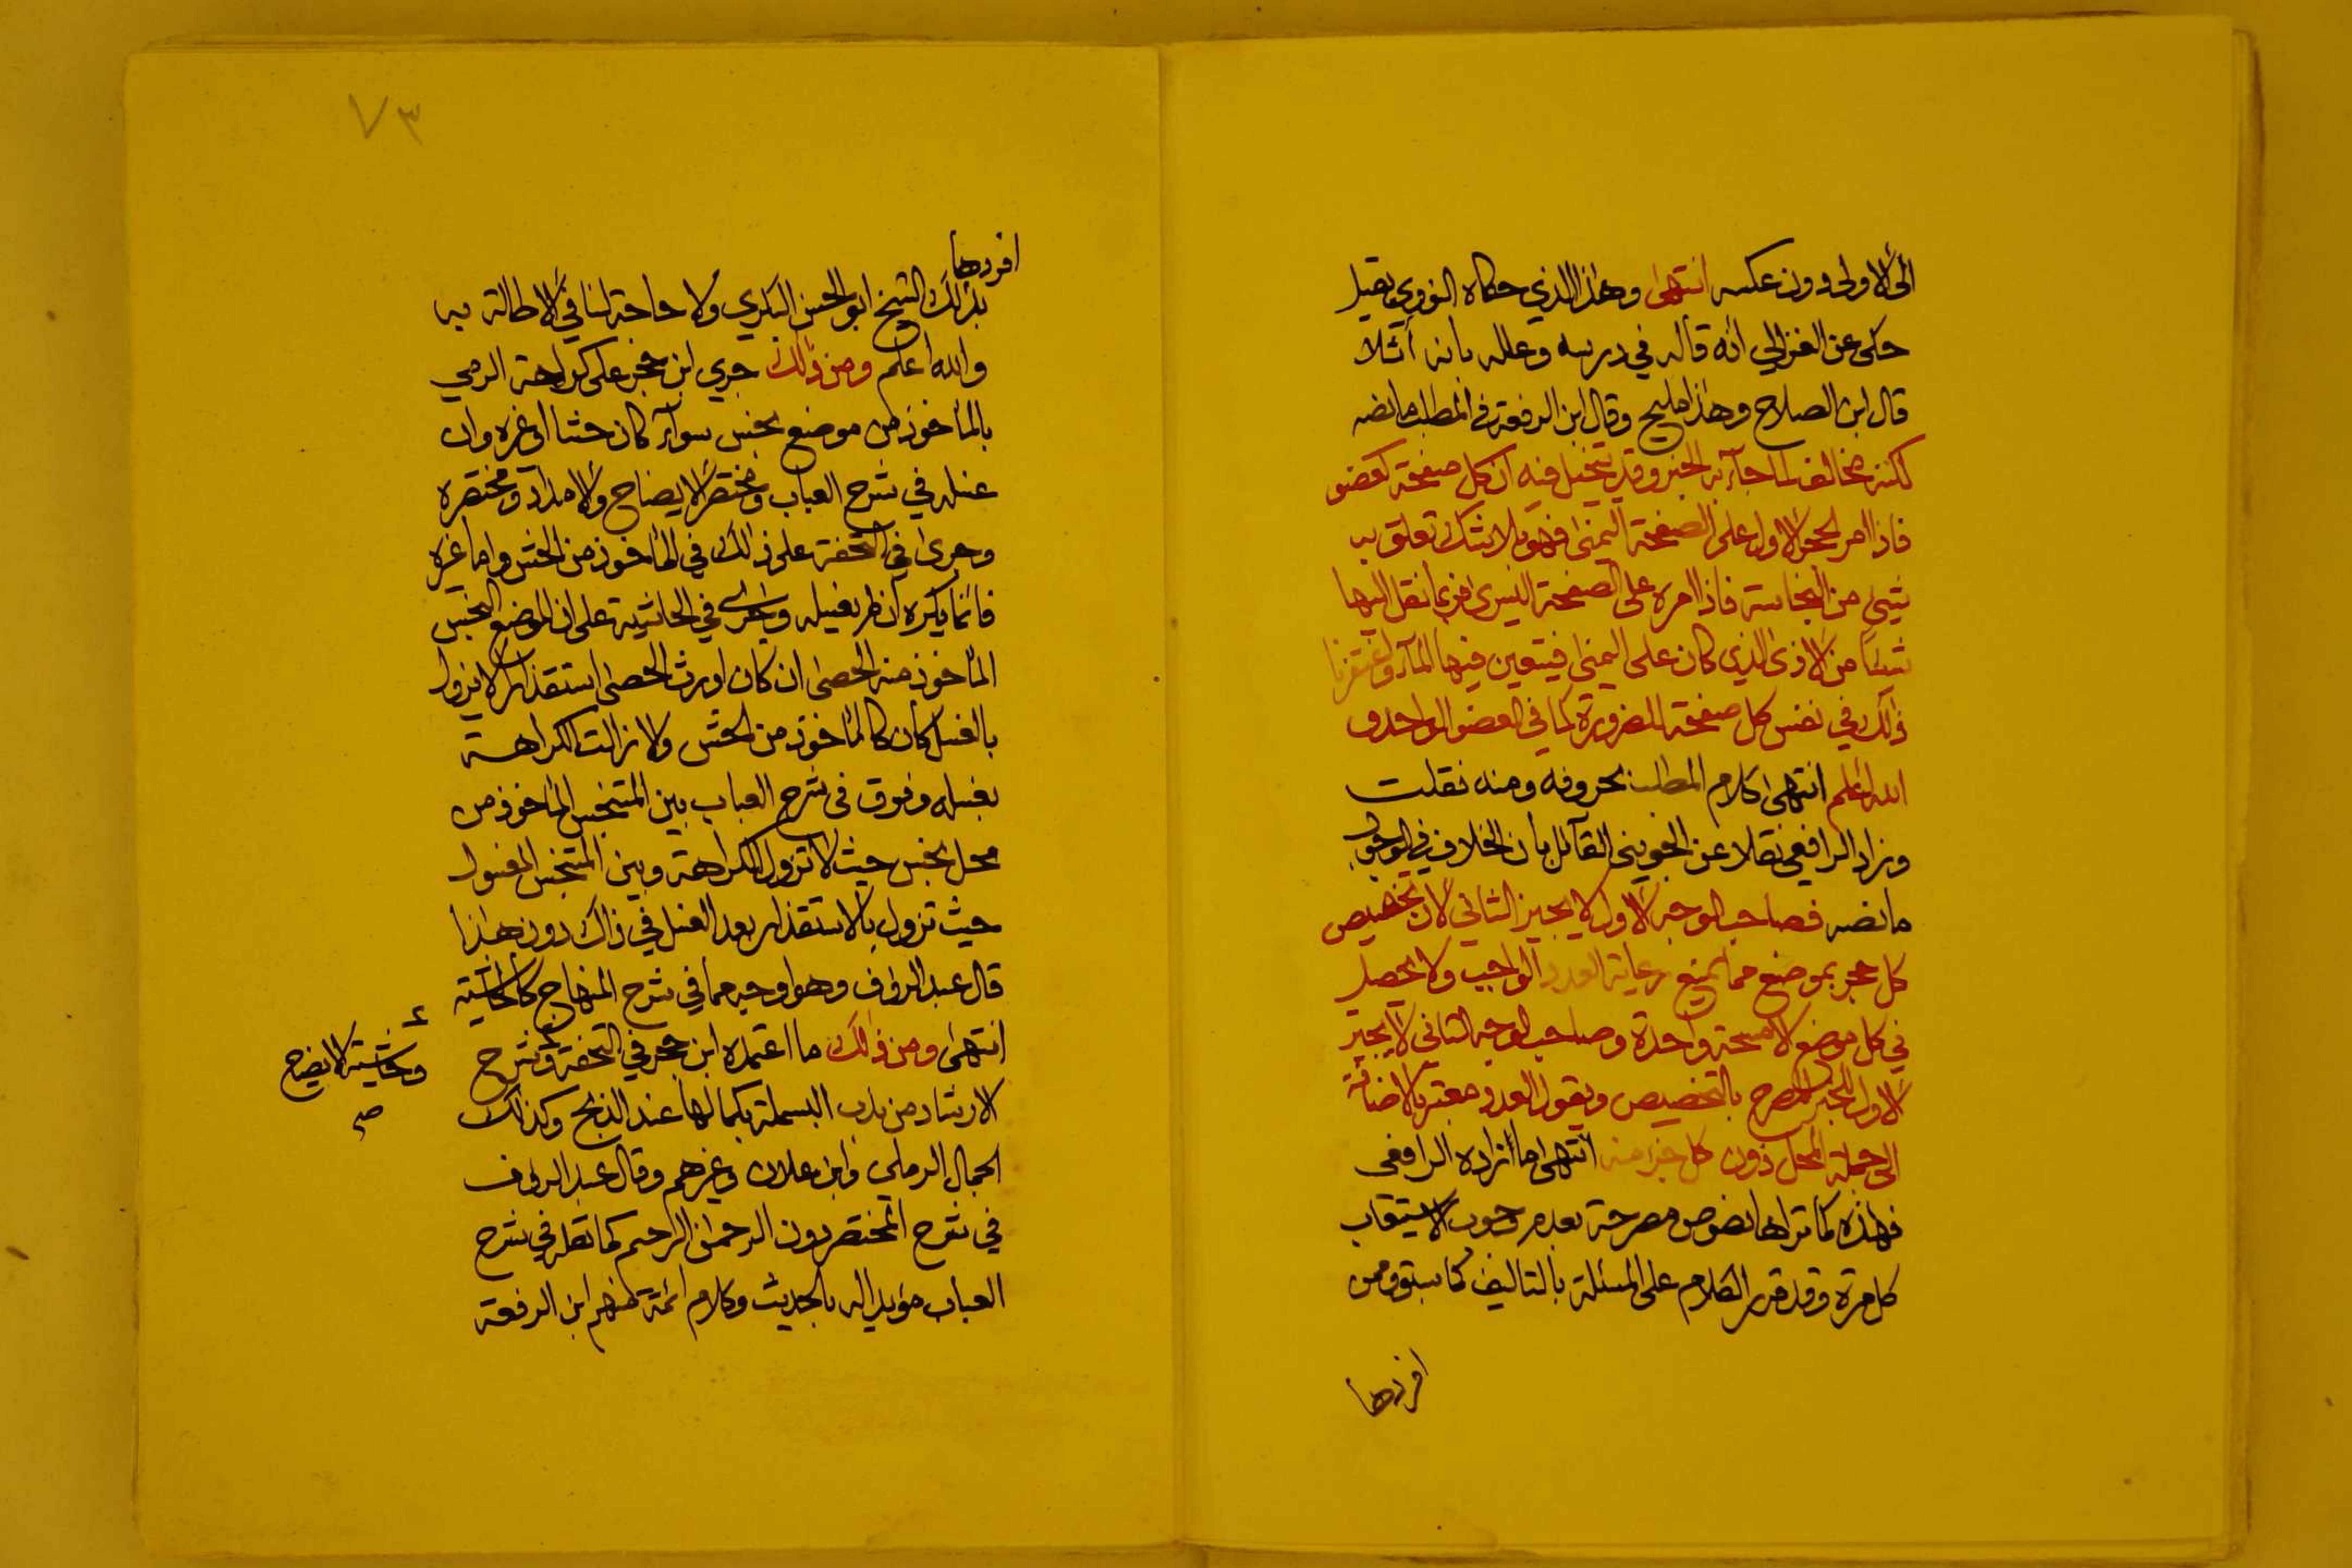 الى الاولى دون عكسه انتهى وهذا الذي حكاه النووي بقيل
حكى عن الغزالي انه قاله في درسه وعلله بانه
قال ابن الصلاح وهذا مليح وقال ابن الرفعة في المطلب ما نصه
لكنه مخالف لما جاء به الخبر وقد يتخيل فيه ان كل صفحة كعضو
فاذا امر الحجر الاول على الصفحة اليمنى فهو بلا شك تعلق به
شيئ من النجاسة فاذا امره على الصفحة اليسرى فربما نقل اليها
شيئا من الاذى الذي كان على اليمنى فيتعين فيها الماء واغتفرنا
ذلك في نفس كل صفحة للضرورة كما في العضو الواحد و
الله اعلم انتهى كلام المطلب بحروفه ومنه نقلت
وزاد الرافعي نقلا عن الجويني القائل بأن الخلاف في الوجوب
ما نصه فصاحب الوجه الاول لا يجيز الثاني لان تخصيص
كل حجر بموضع مما يمنع رعاية العدد الواجب ولا يحصل
في كل موضع الا مسحة واحدة وصاحب الوجه الثاني لا يجيز
الاول للخبر المصرح بالتخصيص ويقول العدد معتبر بالاضافة
الى جملة المحل دون كل جزء منه انتهى ما زاده الرافعي
فهذه كما تراها نصوص مصرحة بعدم وجوب الاستيعاب
كل مرة وقد قرر الكلام على المسئلة بالتاليف كما سبق وممن
افردها
٧٣
افردها
بذلك الشيخ ابو الحسن البكري ولا حاجة لنا في الاطالة به
والله اعلم ومن ذلك جرى ابن حجر على كراهة الرمي
بالمأخوذ من موضع نجس سواء كان حشا او غيره وان
غسله في شرح العباب ومختصر الايضاح والامداد ومختصره
وجرى في التحفة على ذلك في المأخوذ من الحش واما غيره
فانما يكره ان لم يغسله وجرى في الحاشية على ان الموضع النجس
المأخوذ منه الحصى ان كان اورث الحصى استقذارا لا يزول
بالغسل كان كالمأخوذ من الحش ولا زالت الكراهة
بغسله وفرق في شرح العباب بين المتنجس المأخوذ من
محل نجس حيث لا تزول الكراهة وبين المتنجس المغسول
حيث تزول بالاستقذار بعد الغسل في ذاك دون هذا
قال عبد الرؤف وهو اوجه مما في شرح المنهاج كالحاشية
انتهى ومن ذلك ما اعتمده ابن حجر في التحفة وشرح
الارشاد من ندب البسملة بكمالها عند الذبح وكذلك
الجمال الرملي وابن علان وغيرهم وقال عبد الرؤف
في شرح المختصر بدون الرحمن الرحيم كما نقله في شرح
العباب مؤيدا له بالحديث وكلام ائمة منهم ابن الرفعة
وحاشية الايضاح
صح